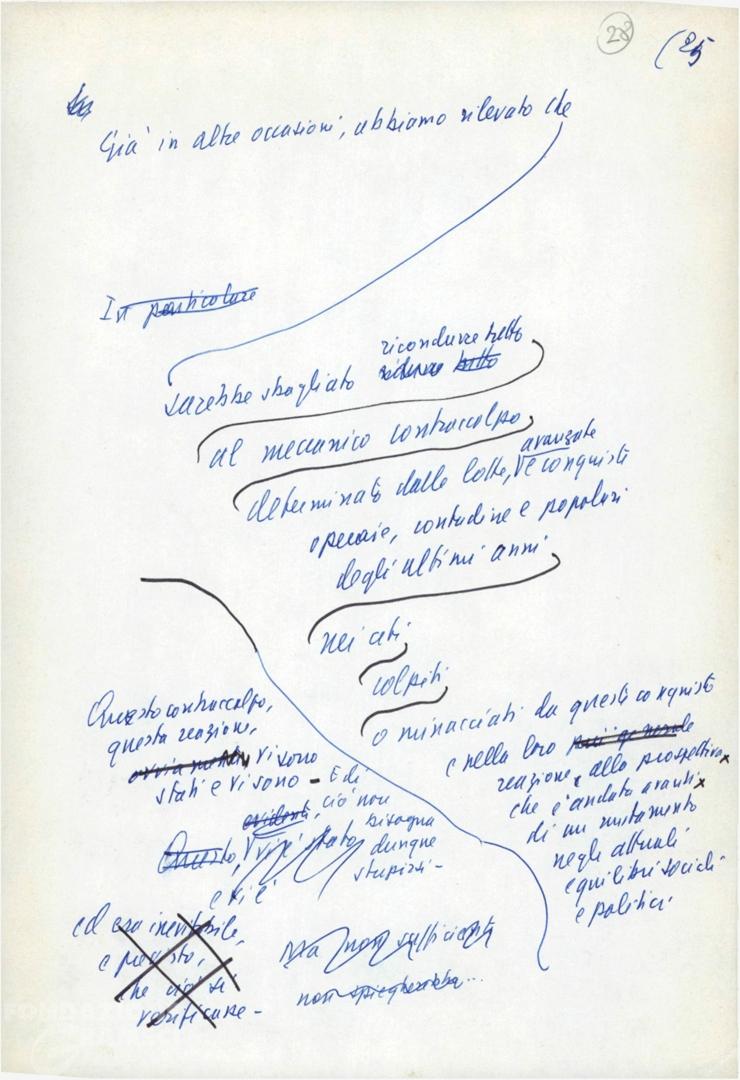 28
(25
Già in altre occasioni, abbiamo rilevato che
In particolare
sarebbe sbagliato ricondurre tutto
ridurre tutto
al meccanico contraccolpo
determinato dalle lotte, e conquiste
avanzate
operaie, contadine e popolari
degli ultimi anni
nei ceti
colpiti
o minacciati da queste conquiste
e nella loro più generale
reazione alla prospettiva
che è andata avanti
di un mutamento
negli attuali
equilibri sociali
e politici
Questo contraccolpo,
questa reazione,
ovviamente vi sono
stati e vi sono - E di
evidenti, ciò non
bisogna
Questo, vi è stato
dunque
stupirsi -
e vi è
ed era inevitabile,
e previsto,
che ciò si
verificasse -
Ma non
non spiegherebbe...